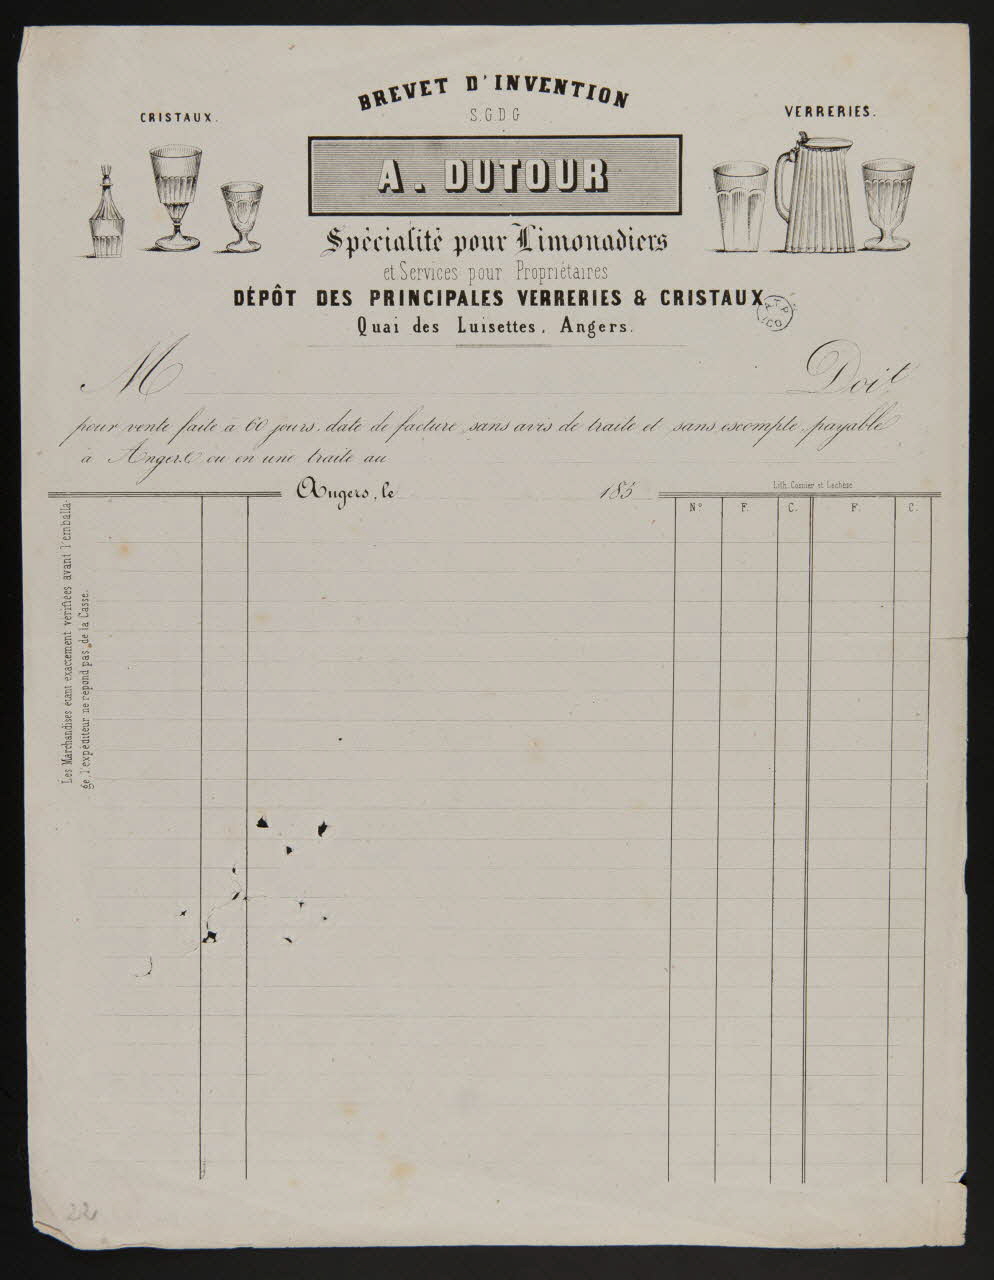 BREVET D'INVENTION
S.G.D.G
CRISTAUX.
VERRERIES.
A. DUTOUR
Spécialité pour Limonadiers
et Services pour Propriétaires
DÉPÔT DES PRINCIPALES VERRERIES & CRISTAUX
Quai des Luisettes, Angers.
M Doit
pour vente faite à 60 jours, date de facture, sans avis de traite et sans escompte, payable
à Angers, ou en une traite au
Angers, le 185
Lith. Cosnier et Lachèse
N° F. C. F. C.
Les Marchandises étant exactement vérifiées avant l'emballa-
ge, l'expéditeur ne répond pas de la Casse.
22